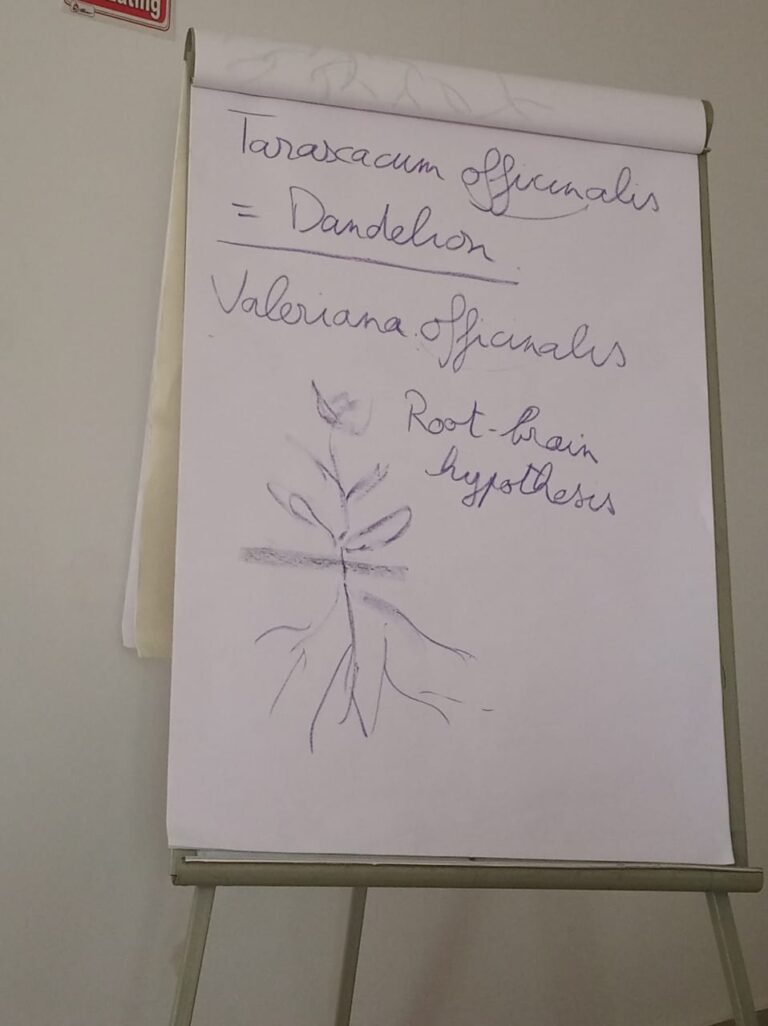 Taraxacum officinalis
= Dandelion
Valeriana officinalis
Root-brain
hypothesis